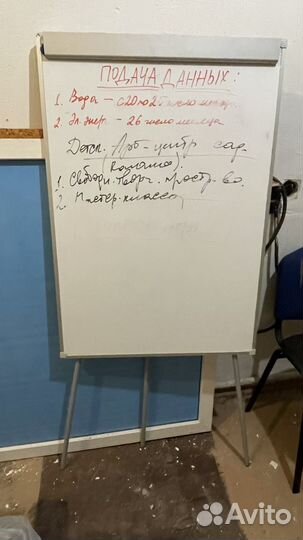 ПОДАЧА ДАННЫХ:
1. Вода – с 20 по 25 число месяца
2. Эл. энер. – 26 число месяца
Детск. Арт-центр сад.
1. Свободн. творч. простр-во.
2. Мастер-классы
Avito